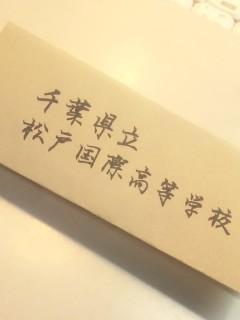 千葉県立
松戸国際高等学校